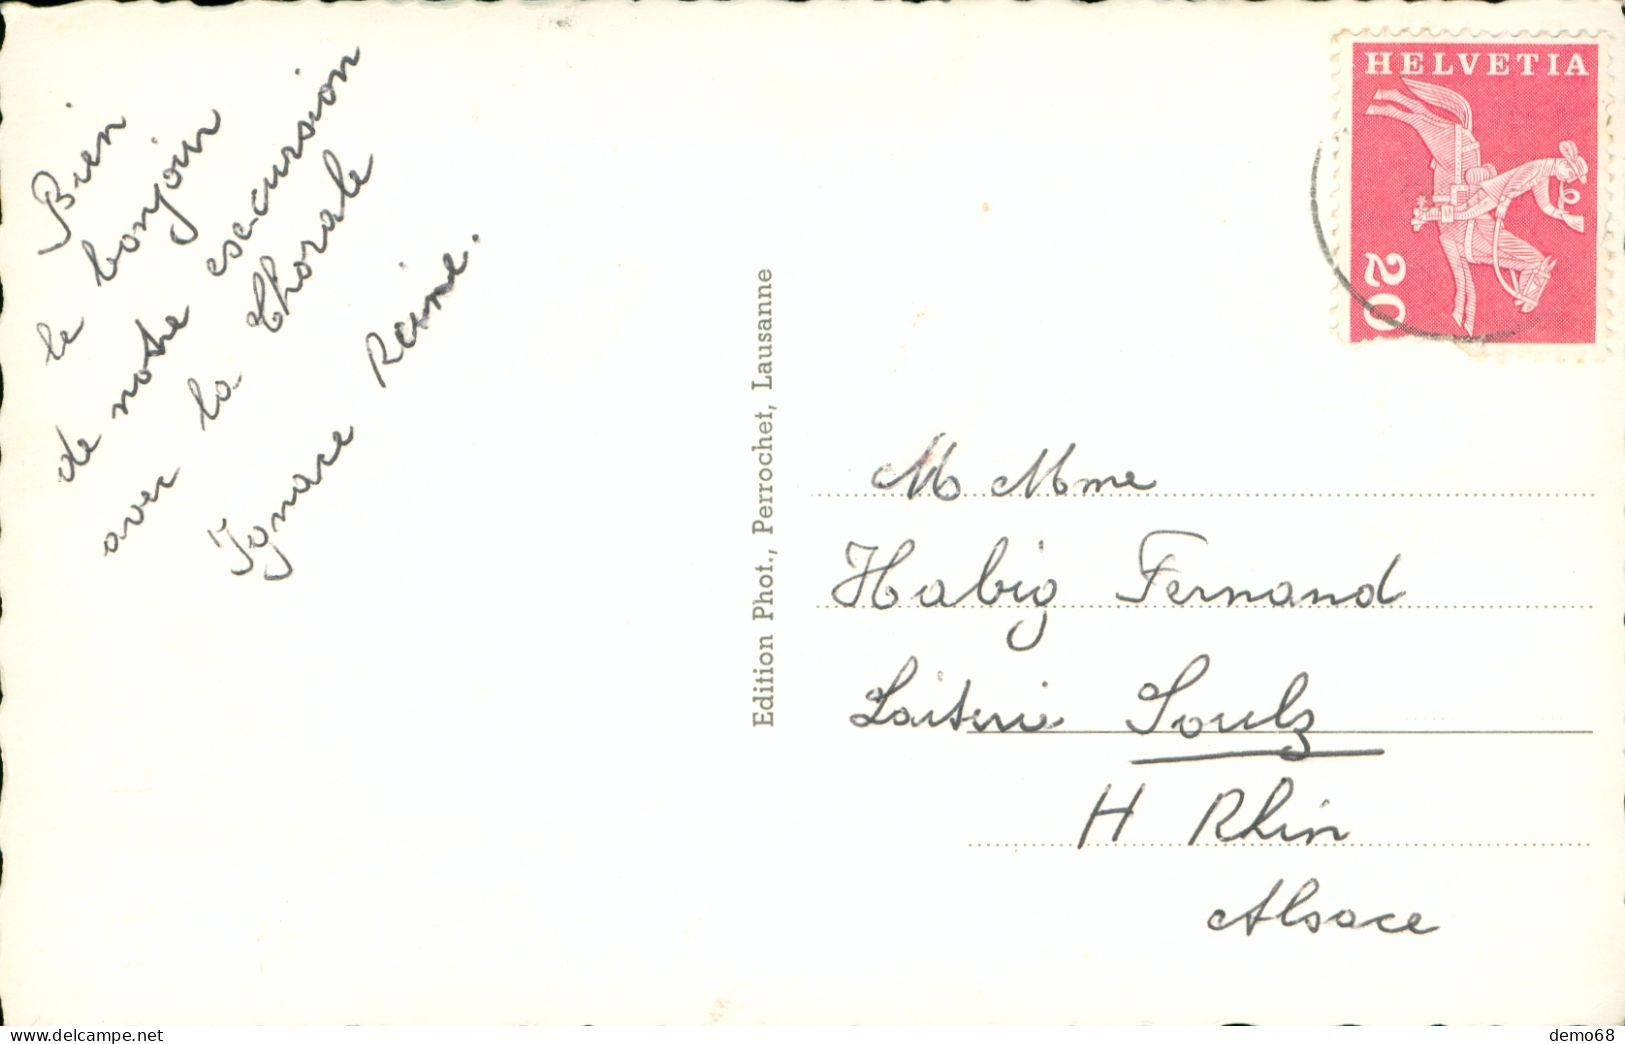 Bien
le bonjour
de notre escursion
avec la Chorale
Ignace Reine.
Edition Phot., Perrochet, Lausanne
HELVETIA
20
M Mme
Habig Fernand
Laiterie Soulz
H Rhin
Alsace
www.delcampe.net
demo68